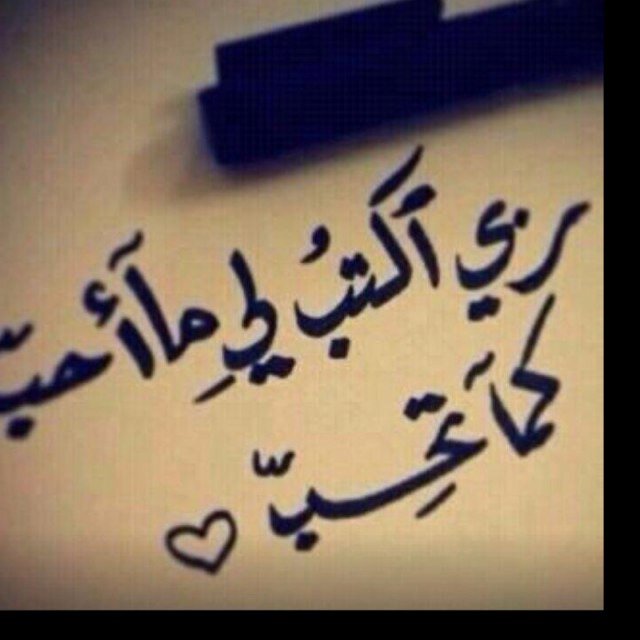 ربي اكتبُ لي ما أحبّ
كما تحبّ